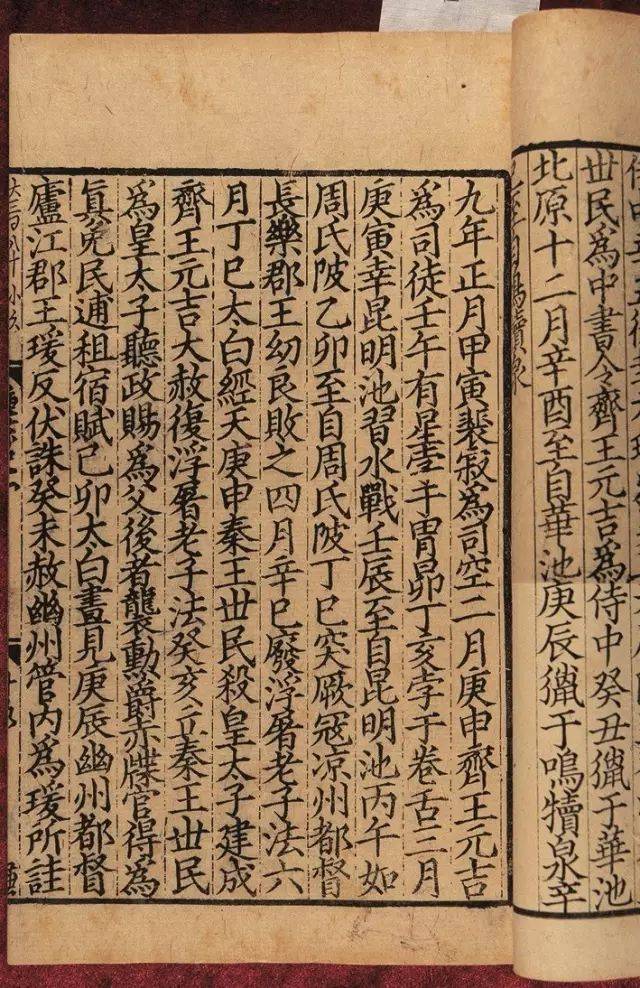 世民為中書令齊王元吉為侍中癸丑獵于華池
北原十二月辛酉至自華池庚辰獵于鳴犢泉辛
巳至自鳴犢泉
九年正月甲寅裴寂為司空二月庚申齊王元吉
為司徒壬午有星孛于胃昴丁亥孛于卷舌三月
庚寅幸昆明池習水戰壬辰至自昆明池丙午如
周氏陂乙卯至自周氏陂丁巳突厥寇凉州都督
長樂郡王幼良敗之四月辛巳廢浮屠老子法六
月丁巳太白經天庚申秦王世民殺皇太子建成
齊王元吉大赦復浮屠老子法癸亥立秦王世民
為皇太子聽政賜為父後者襲勳爵赤牒官得為
眞免民逋租宿賦己卯太白晝見庚辰幽州都督
廬江郡王瑗反伏誅癸未赦幽州管内為瑗所詿